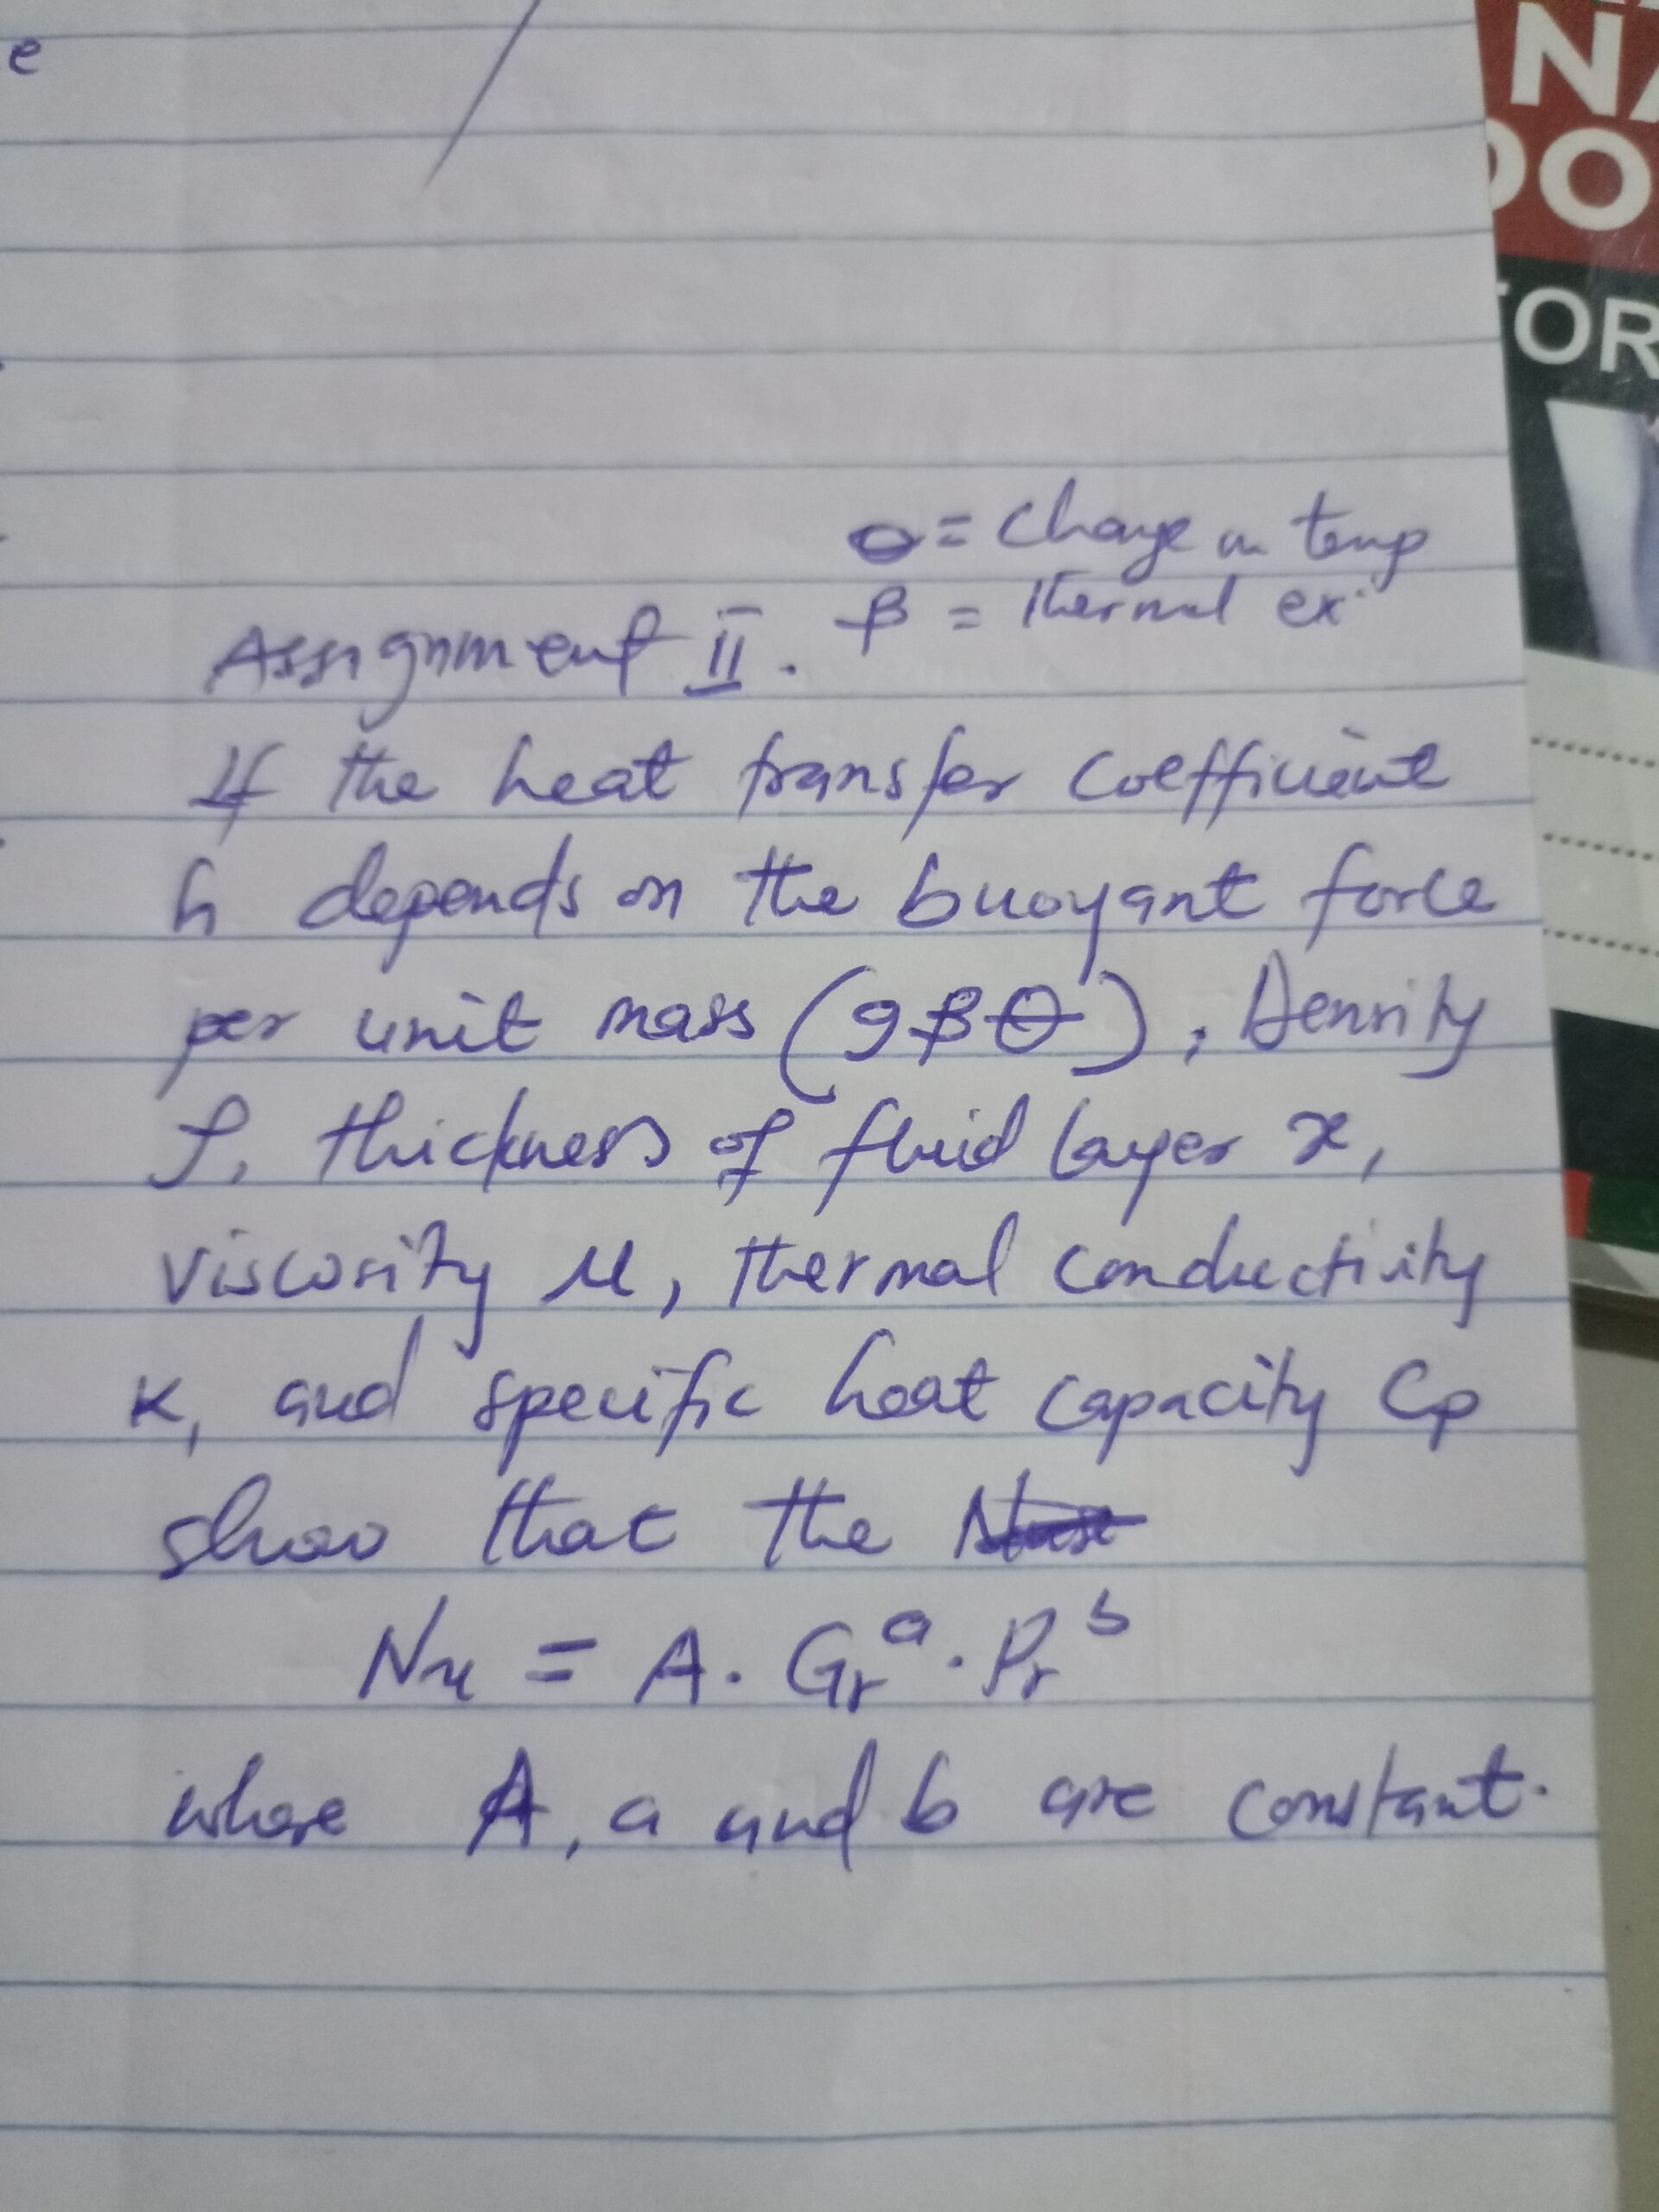 e
θ = Change in temp
β = thermal ex.
Assignment II.
If the heat transfer coefficient
h depends on the buoyant force
per unit mass (gβθ), Density
ρ, thickness of fluid layer x,
viscosity μ, thermal conductivity
K, and specific heat capacity Cp
show that the
Nu = A. Gr^a . Pr^b
where A, a and b are constant.
NA
DO
FOR